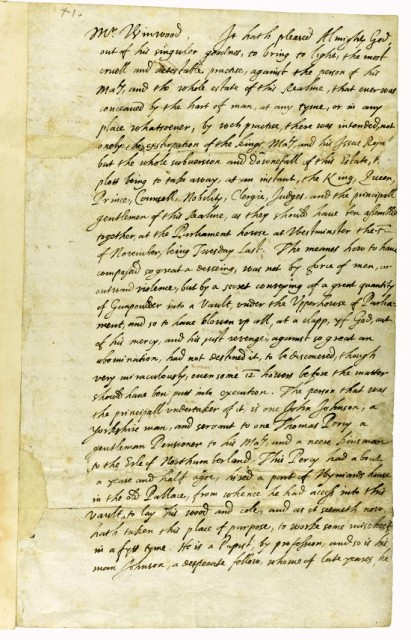 Mr Winwood. It hath pleased Almighty God
out of his singuler goodnes, to bring to light, the most
cruell and detestable practice, against the person of his
Maty, and the whole estate of this Realme, that ever was
conceaved by the hart of man, at any tyme, or in any
place whatsoever, by wch practice, there was intended, not
onely the extirpation of the kings Maty, and his Issue Royal
but the whole subversion and Downefall of this Estate, the
plott being to take away, at an instant, the King, Queen,
Prince, Counsell, Nobility, Clergie, Judges, and the principall
gentlemen of this Realme, as they should have ben assembled
together, at the Parliament house, at Westminster the 5
of November, being Tuesday Last. The meanes how to have
compassed so great a designe, was not by force of men, or
outward violence, but by a secret conveying of a great quantity
of Gunpowder into a Vault, under the Upper house of Parlia-
ment, and so to have blowen up all, at a clapp, yf God, out
of his mercy, and his just revenge, against so great an
abomination, had not destined it, to be discovered, though
very miraculously, even some 12 howers before the matter
should have ben put into execution. The person that was
the principall undertaker of it, is one John Johnson, a
Yorkshire man, and servant to one Thomas Percy, a
gentleman Pensioner to his Maty, and a neere kinsman
to the Erle of Northumberland. This Percy had about
a yeare and half agoe, hired a part of Wyniards house
in the old Pallace, from whence he had access into this
vault, to lay his wood and cole, and as it seemeth now,
hath taken this place of purpose, to worke some mischief
in a fytt tyme. He is a Papist, by profession, and so is his
man Johnson, a desperate fellow, whome of late yeares, he